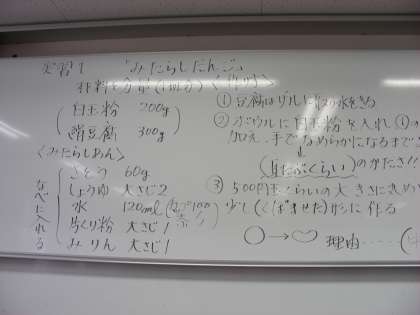 実習1 「みたらしだんご」
材料と分量(1班分) 〈作り方〉
白玉粉 200g
絹豆腐 300g
〈みたらしあん〉
なべに入れる
さとう 60g
しょうゆ 大さじ2
水 120ml
片くり粉 大さじ1
みりん 大さじ1
① 豆腐はザルに 水をきる
② ボウルに白玉粉を入れ①の
加え、手でなめらかになるまで
(耳たぶくらい)のかたさ!!
③ 500円玉くらいの大きさにまるめ
少し(くぼませた)形に作る
○→ 理由……(